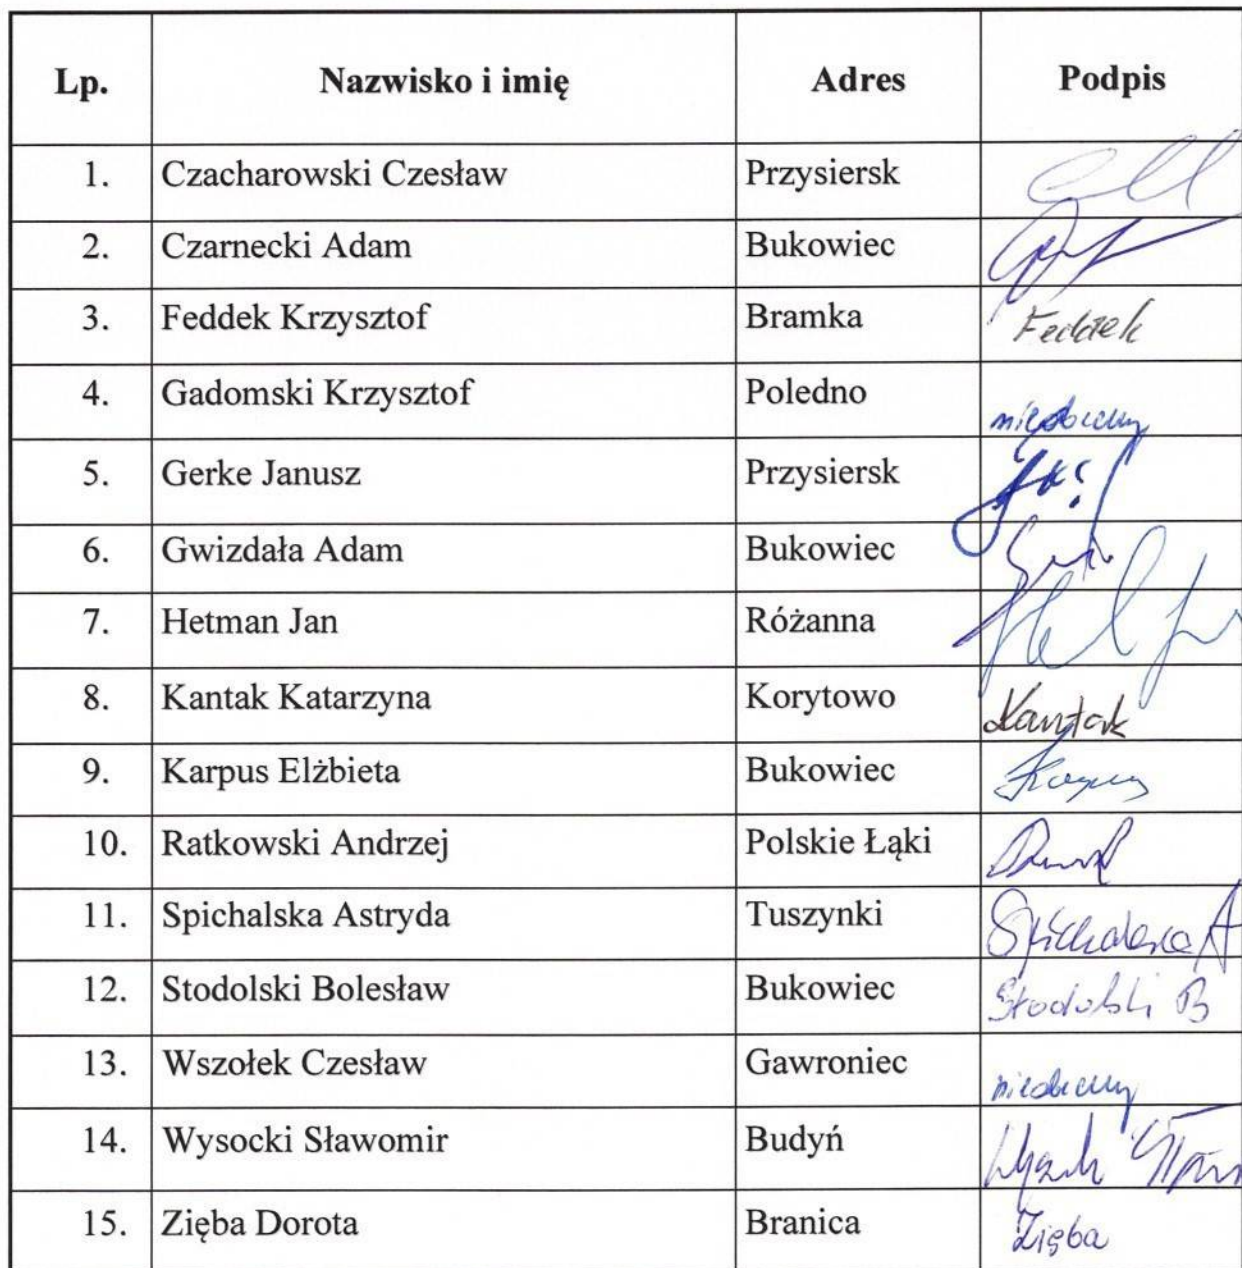 Lp. Nazwisko i imię Adres Podpis
1. Czacharowski Czesław Przysiersk
2. Czarnecki Adam Bukowiec
3. Feddek Krzysztof Bramka Feddek
4. Gadomski Krzysztof Poledno nieobecny
5. Gerke Janusz Przysiersk
6. Gwizdała Adam Bukowiec
7. Hetman Jan Różanna
8. Kantak Katarzyna Korytowo Kantak
9. Karpus Elżbieta Bukowiec Karpus
10. Ratkowski Andrzej Polskie Łąki
11. Spichalska Astryda Tuszynki Spichalska A
12. Stodolski Bolesław Bukowiec Stodolski B
13. Wszołek Czesław Gawroniec nieobecny
14. Wysocki Sławomir Budyń
15. Zięba Dorota Branica Zięba